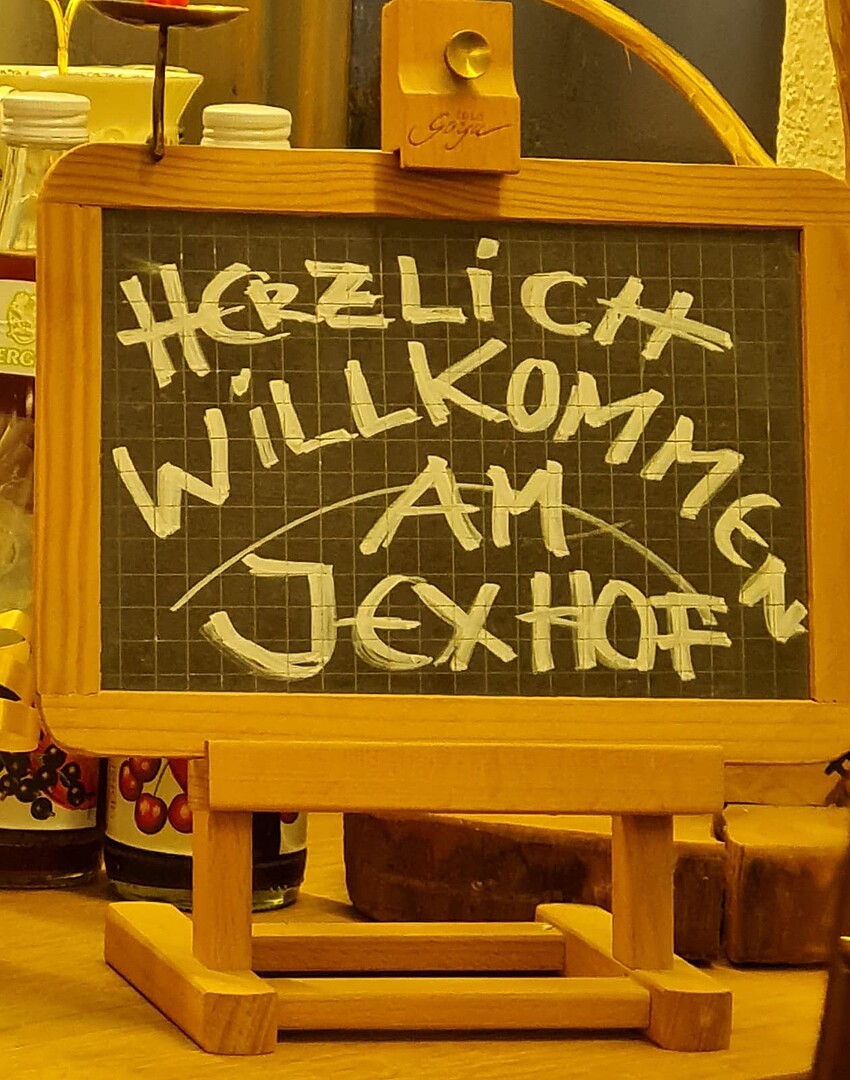 Goya
HERZLiCH
WiLLKOMMEN
AM
JEXHOF